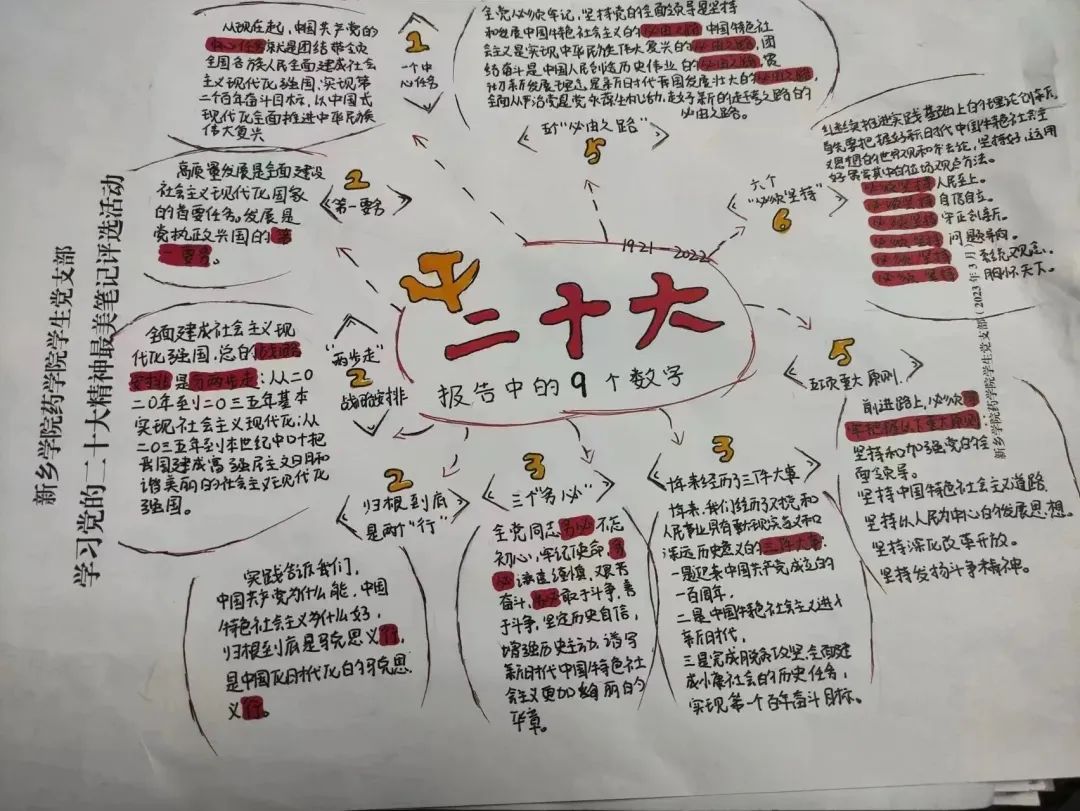 新乡学院药学院学生党支部
学习党的二十大精神最美笔记评选活动
新乡学院药学院学生党支部(2023年3月)
1921-2022
二十大
报告中的9个数字
1
一个中
心任务
从现在起,中国共产党的
中心任务就是团结带领
全国各族人民全面建成社会
主义现代化强国、实现第
二个百年奋斗目标,以中国式
现代化全面推进中华民族
伟大复兴
2
第一要务
高质量发展是全面建设
社会主义现代化国家
的首要任务。发展是
党执政兴国的第
一要务。
"两步走"
2
战略安排
全面建成社会主义现
代化强国,总的战略
安排是分两步走:从二〇
二〇年到二〇三五年基本
实现社会主义现代化;从
二〇三五年到本世纪中叶把
我国建成富强民主文明和
谐美丽的社会主义现代化
强国。
2
归根到底
是两个"行"
实践告诉我们,
中国共产党为什么能,中国
特色社会主义为什么好,
归根到底是马克思主义行,
是中国化时代化的马克思
主义行。
3
三个"务必"
全党同志务必不忘
初心、牢记使命,务
必谦虚谨慎、艰苦
奋斗,务必敢于斗争、善
于斗争,坚定历史自信,
增强历史主动,谱写
新时代中国特色社
会主义更加绚丽的
华章。
3
十年来经历了三件大事
十年来,我们经历了对党和
人民事业具有重大现实意义和
深远历史意义的三件大事:
一是迎来中国共产党成立的
一百周年,
二是中国特色社会主义进入
新时代,
三是完成脱贫攻坚、全面建
成小康社会的历史任务,
实现第一个百年奋斗目标。
5
五项重大原则
前进路上,必须
牢牢把握以下重大原则:
坚持和加强党的全
面领导。
坚持中国特色社会主义道路
坚持以人民为中心的发展思想。
坚持深化改革开放。
坚持发扬斗争精神。
六个
"必须坚持"
6
继续推进实践基础上的理论创新,
首先要把握好新时代中国特色社会主
义思想的世界观和方法论,坚持好、运用
好贯穿其中的立场观点方法。
必须坚持人民至上。
必须坚持自信自立。
必须坚持守正创新。
必须坚持问题导向。
必须坚持系统观念。
必须坚持胸怀天下。
五个"必由之路"
5
全党必须牢记,坚持党的全面领导是坚持
和发展中国特色社会主义的必由之路,中国特色社
会主义是实现中华民族伟大复兴的必由之路,团
结奋斗是中国人民创造历史伟业的必由之路,贯
彻新发展理念是新时代我国发展壮大的必由之路,
全面从严治党是党永葆生机活力、走好新的赶考之路的
必由之路。